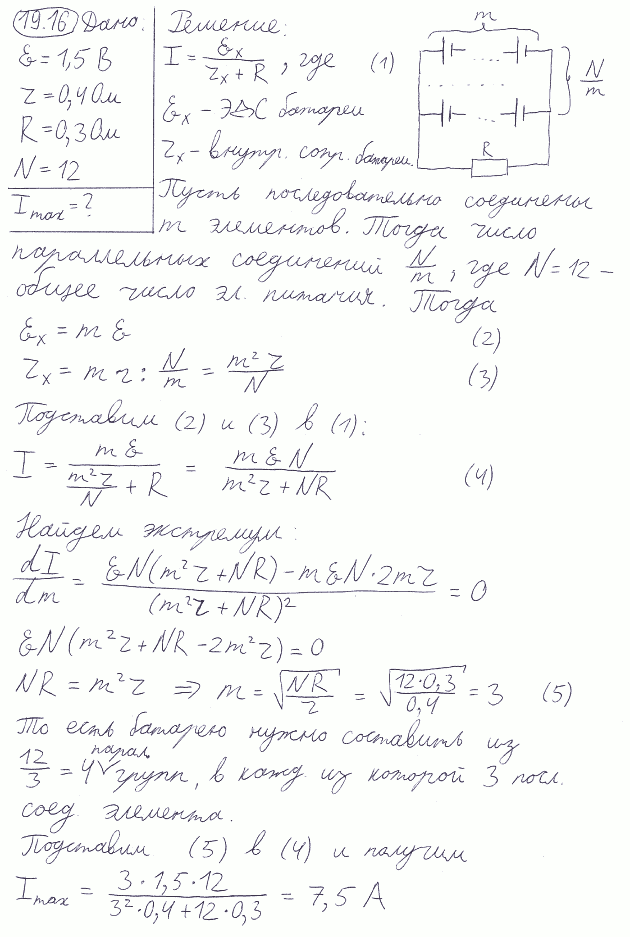 19.16 Дано: Решение:
ℰ = 1,5 В
r = 0,4 Ом
R = 0,3 Ом
N = 12
I max = ?
I = ℰx / (rx + R), где (1)
ℰx - ЭДС батареи
rx - внутр. сопр. батареи.
m
N/m
R
Пусть последовательно соединены
m элементов. Тогда число
параллельных соединений N/m, где N = 12 -
общее число эл. питания. Тогда
ℰx = m ℰ (2)
rx = m r : N/m = m² r / N (3)
Подставим (2) и (3) в (1):
I = m ℰ / (m² r / N + R) = m ℰ N / (m² r + NR) (4)
Найдем экстремум:
dI/dm = (ℰN(m² r + NR) - mℰN · 2mr) / (m² r + NR)² = 0
ℰN(m² r + NR - 2m² r) = 0
NR = m² r ⇒ m = √(NR/r) = √(12·0,3 / 0,4) = 3 (5)
То есть батарею нужно составить из
12/3 = 4 парал. групп, в кажд. из которой 3 посл.
соед. элемента.
Подставим (5) в (4) и получим
I max = 3 · 1,5 · 12 / (3² · 0,4 + 12 · 0,3) = 7,5 А